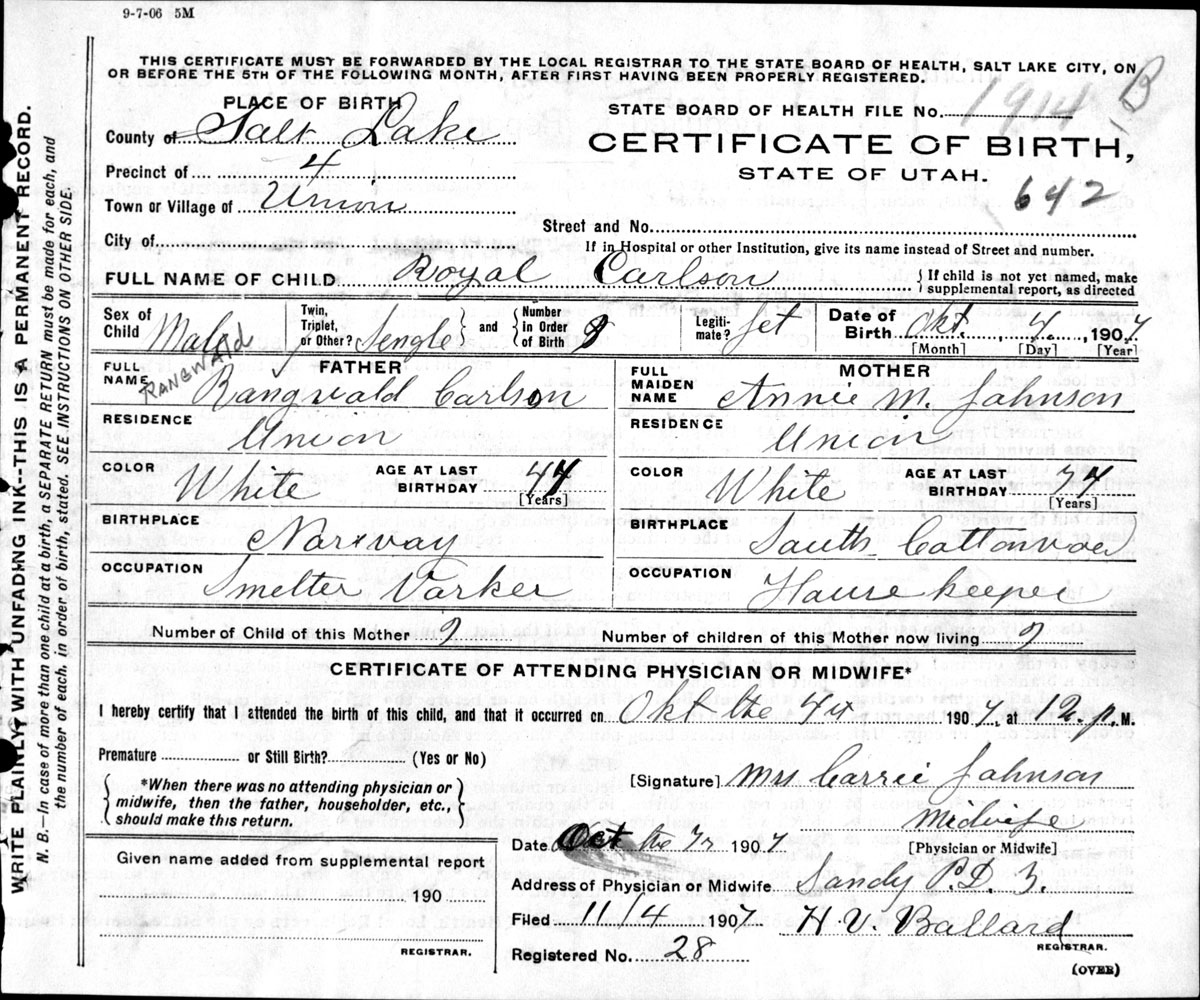 9-7-06 5M
THIS CERTIFICATE MUST BE FORWARDED BY THE LOCAL REGISTRAR TO THE STATE BOARD OF HEALTH, SALT LAKE CITY, ON
OR BEFORE THE 5TH OF THE FOLLOWING MONTH, AFTER FIRST HAVING BEEN PROPERLY REGISTERED.
PLACE OF BIRTH
County of Salt Lake
Precinct of 4
Town or Village of Union
City of
STATE BOARD OF HEALTH FILE No. 1914 B
CERTIFICATE OF BIRTH,
STATE OF UTAH.
642
Street and No.
If in Hospital or other Institution, give its name instead of Street and number.
FULL NAME OF CHILD Royal Carlson { If child is not yet named, make supplemental report, as directed
Sex of Child Male Twin, Triplet, or Other? Sengle } and { Number in Order of Birth Legiti-mate? jet Date of Birth Okt. 4, 1907
[Month] [Day] [Year]
FATHER
FULL NAME Rangwald Carlson
RANGWALD
RESIDENCE Union
COLOR White AGE AT LAST BIRTHDAY 44
[Years]
BIRTHPLACE Norway
OCCUPATION Smelter Varker
MOTHER
FULL MAIDEN NAME Annie M. Johnson
RESIDENCE Union
COLOR White AGE AT LAST BIRTHDAY
[Years]
BIRTHPLACE South Cottonwoe
OCCUPATION House keeper
Number of Child of this Mother 9 Number of children of this Mother now living 9
CERTIFICATE OF ATTENDING PHYSICIAN OR MIDWIFE*
I hereby certify that I attended the birth of this child, and that it occurred on Okt the 4 1907, at 12. p. M.
Premature or Still Birth? (Yes or No)
{ *When there was no attending physician or midwife, then the father, householder, etc., should make this return. }
[Signature] Mrs Carrie Johnson
Midwife
[Physician or Midwife]
Date Oct the 1907
Address of Physician or Midwife Sandy P.D. 3.
Filed 11/4 1907 H. V. Ballard
REGISTRAR.
Registered No. 28
(OVER)
Given name added from supplemental report
190
REGISTRAR.
WRITE PLAINLY WITH UNFADING INK--THIS IS A PERMANENT RECORD.
N. B.—In case of more than one child at a birth, a SEPARATE RETURN must be made for each, and
the number of each, in order of birth, stated. SEE INSTRUCTIONS ON OTHER SIDE.